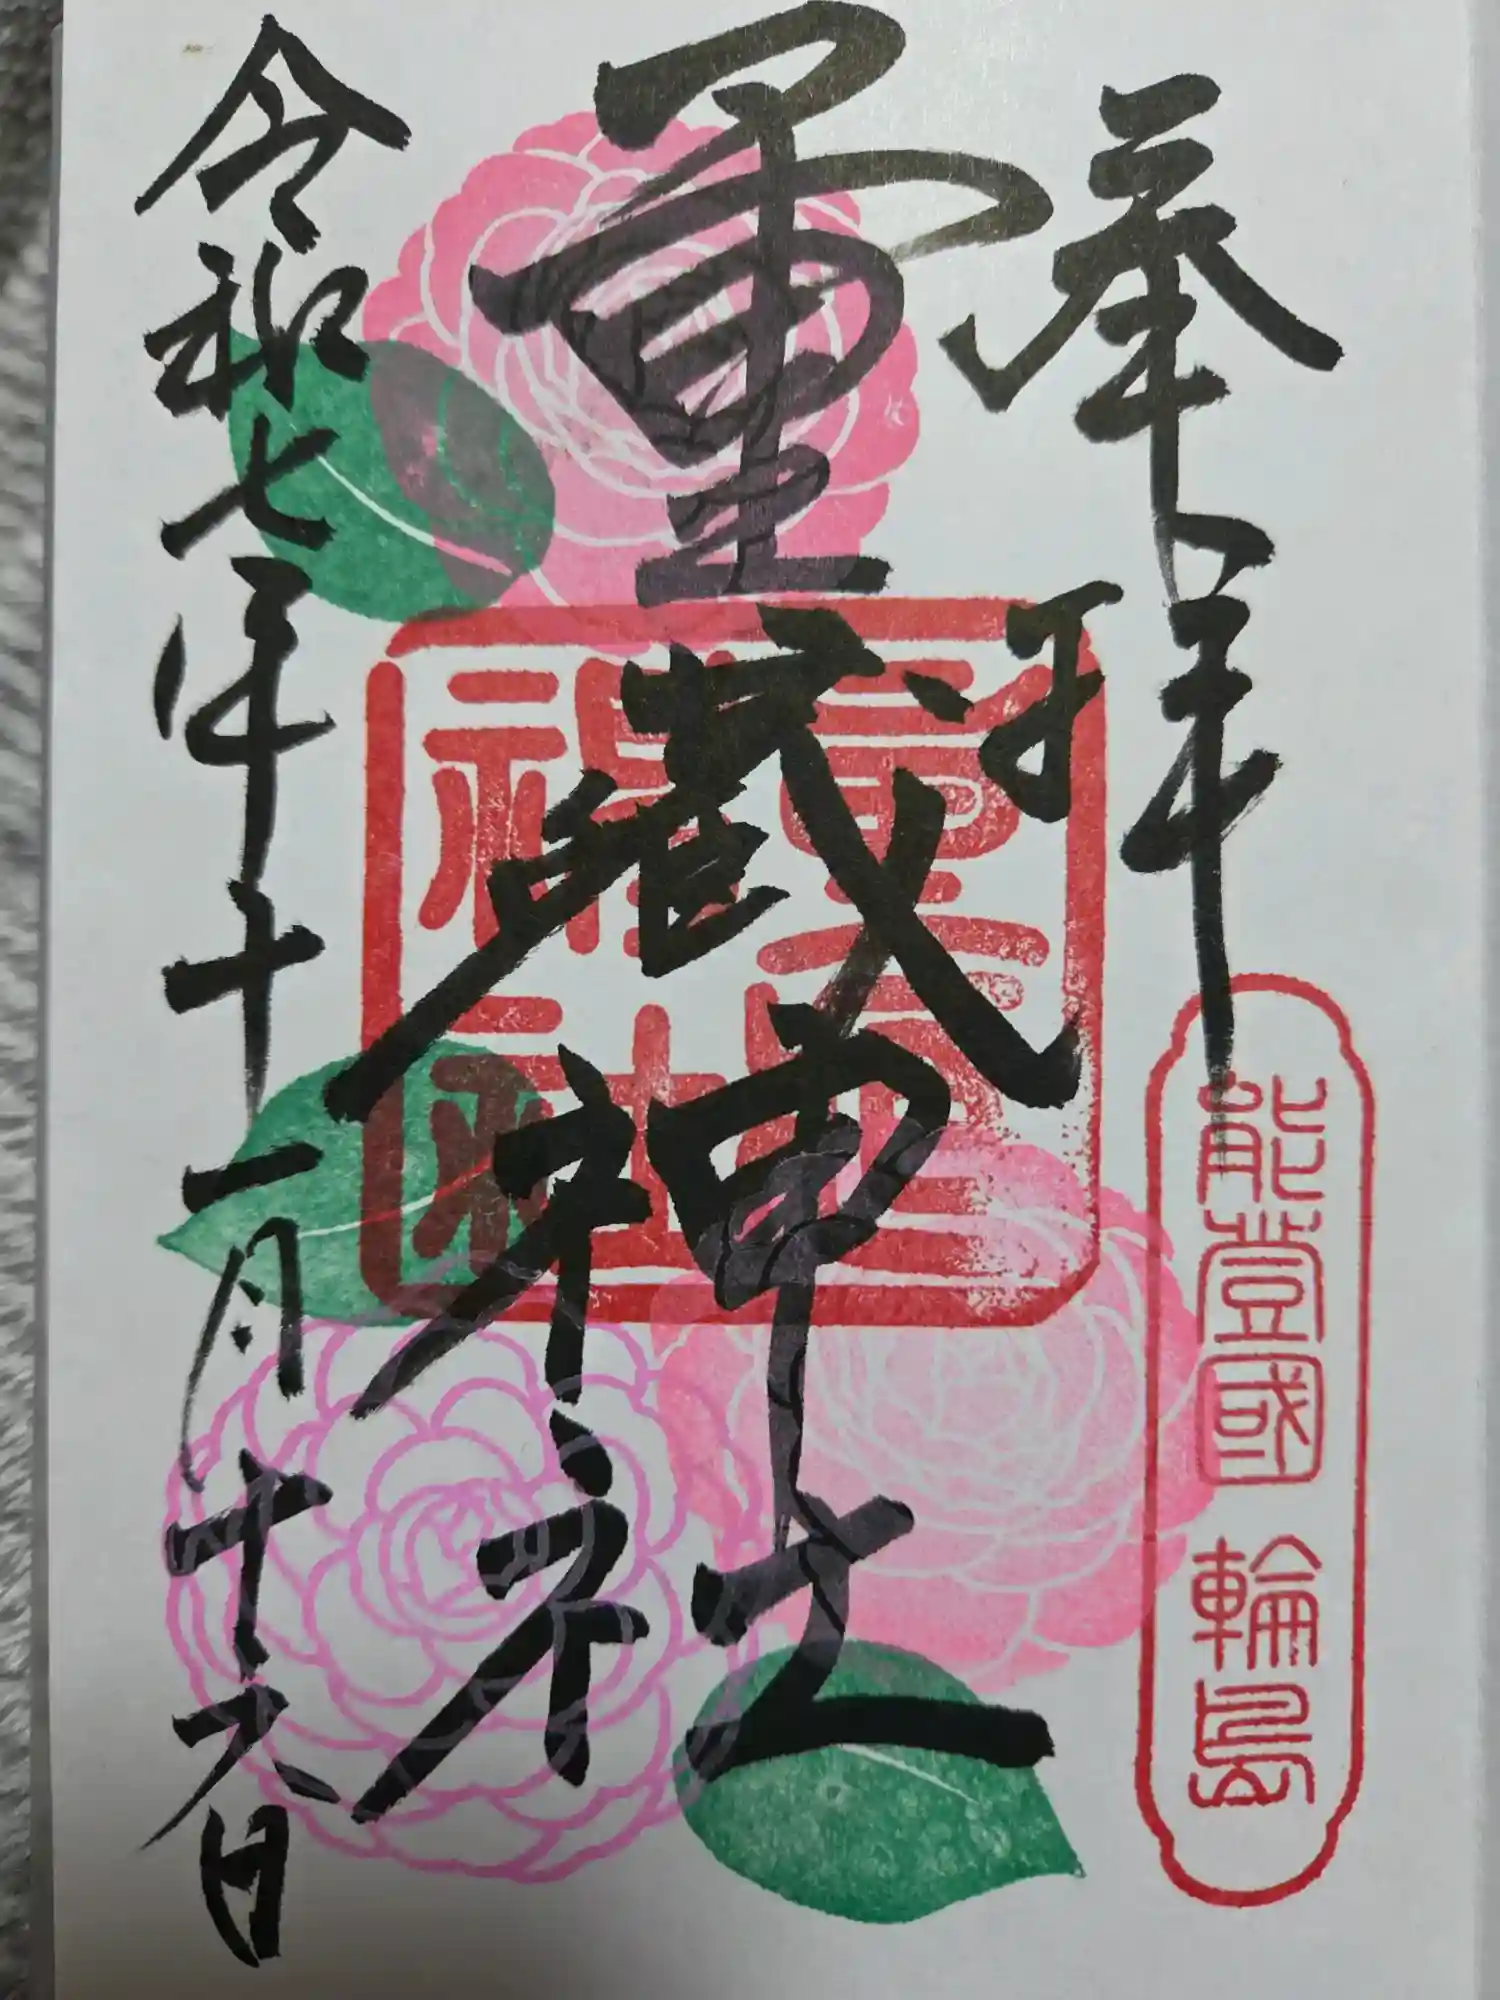 奉拝
能登國 輪島
重蔵神社
重蔵
神社
令和七年十一月十六日